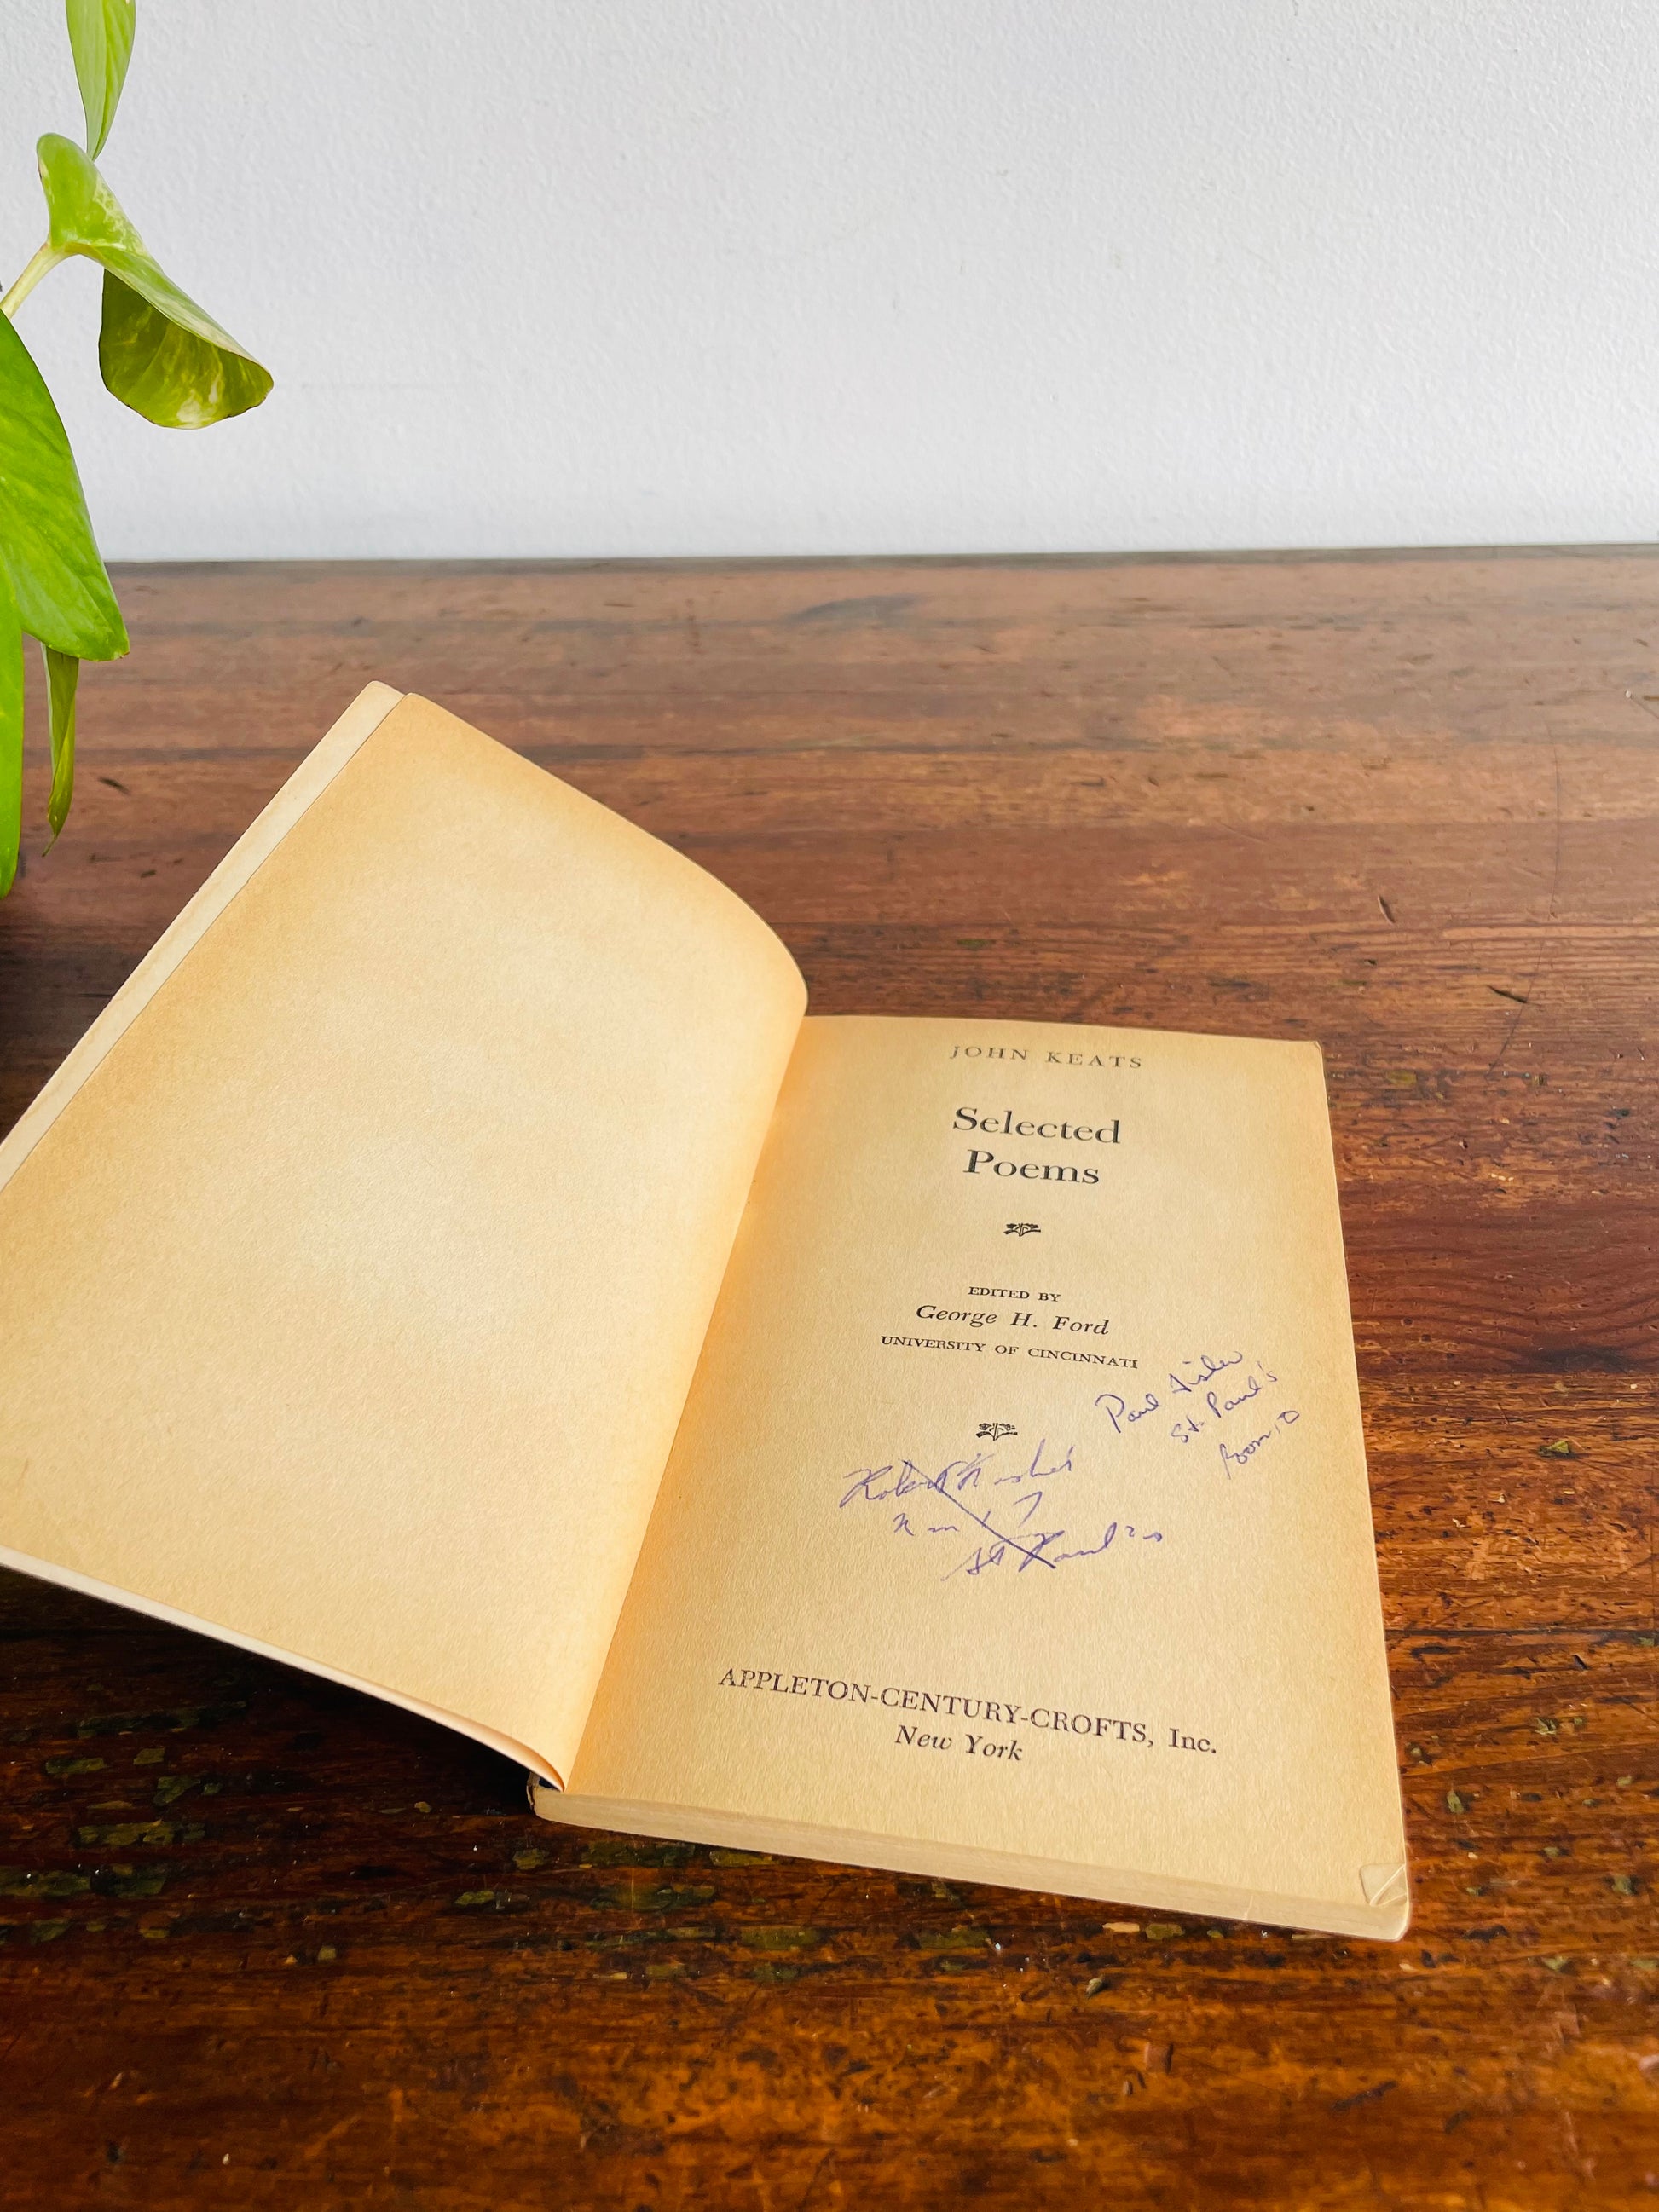 JOHN KEATS
Selected
Poems
EDITED BY
George H. Ford
UNIVERSITY OF CINCINNATI
Paul
St. Paul's
Robert
St Paul's
APPLETON-CENTURY-CROFTS, Inc.
New York